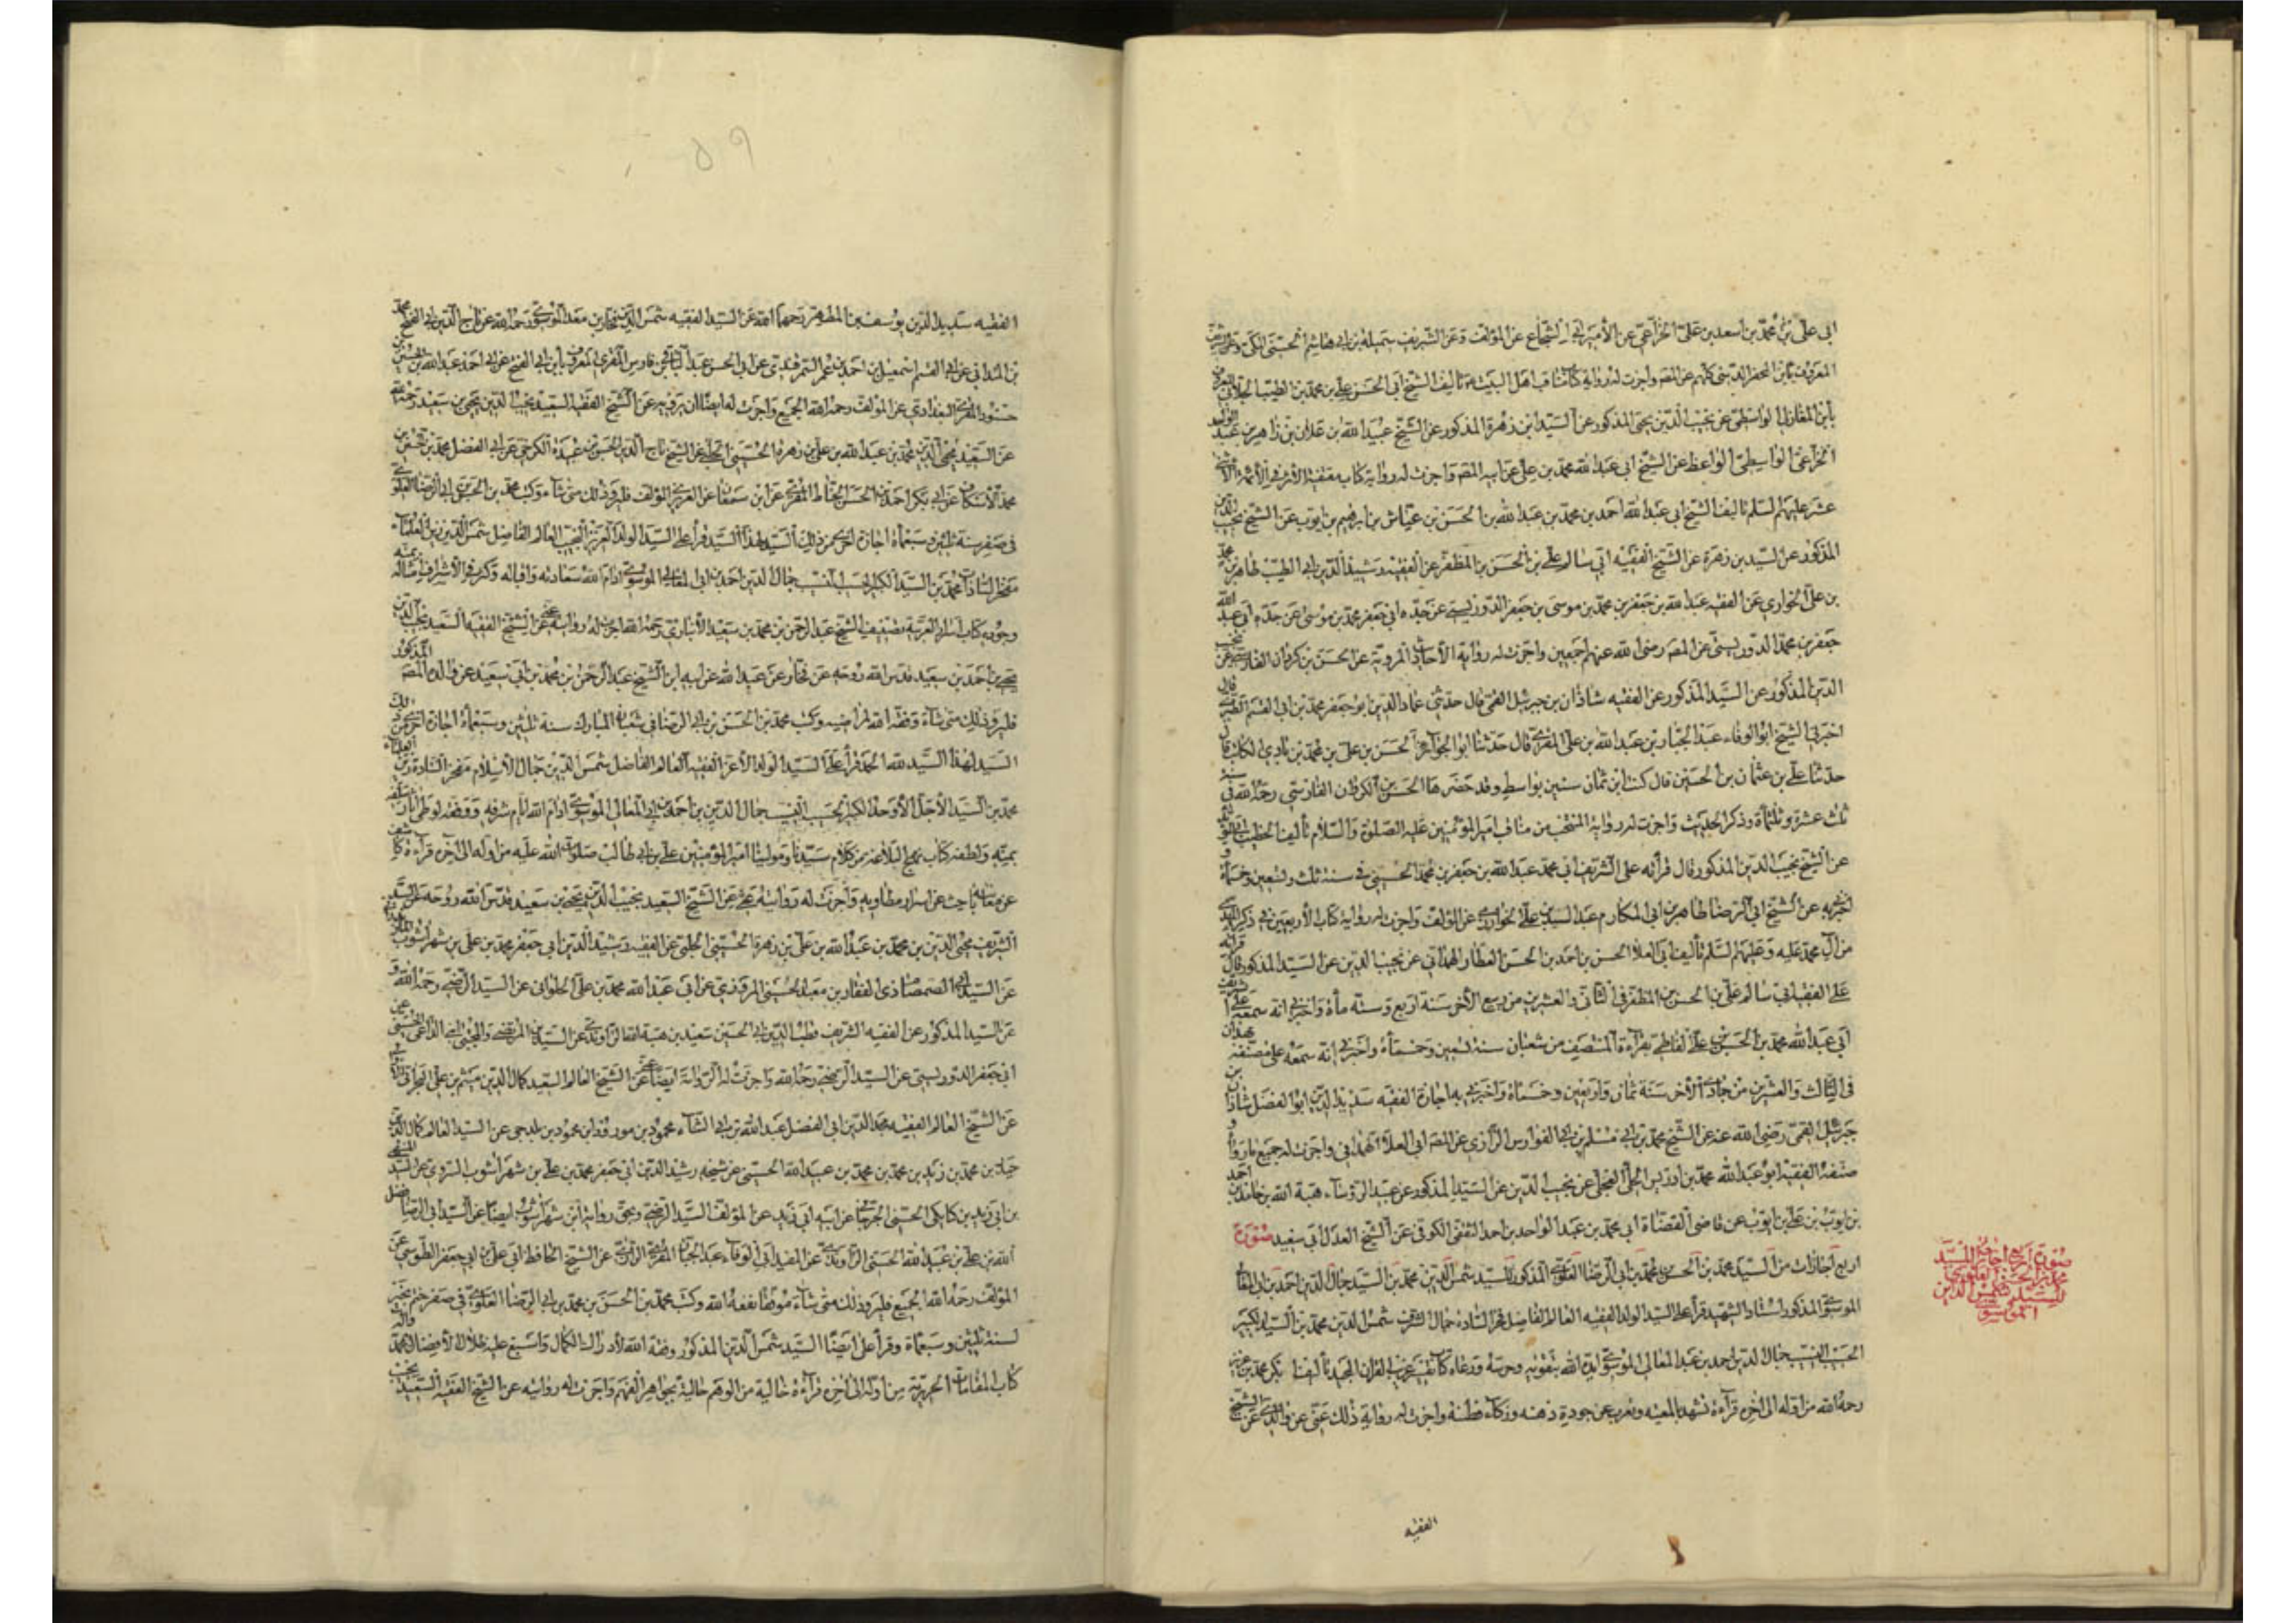 ابى على بن محمد بن اسعد بن على الخزاعى عن الأمير ابى الشجاع عن المؤلف وعن الشريف بن ابى هاشم الحسنى
المعروف بابن كلهم عن المصـ واجزت له رواية كتاب مناقب اهل البيت تأليف الشيخ ابى الحسن على بن محمد بن الطيب الجلابى المعروف
بابن المغازلى الواسطى عن نجيب الدين يحيى المذكور عن السيد ابن زهرة المذكور عن الشيخ عبد الله بن علان بن زاهر بن
الخزاعى الواسطى الواعظ عن الشيخ ابى عبد الله محمد بن على عن ابيه المصـ واجزت له رواية كتاب مقتضب الأثر فى الأئمة الأثنى
عشر عليهم السلم تأليف الشيخ ابى عبد الله احمد بن محمد بن عبد الله بن الحسن بن عياش بن ابرهيم بن ايوب عن الشيخ نجيب الدين
المذكور عن السيد بن زهرة عن الشيخ الفقيه ابى سالم على بن الحسن بن المظفر عن الفقيه رشيد الدين ابى الطيب طاهر بن محمد
بن على الخوارى عن الفقيه عبد الله بن جعفر بن محمد بن موسى بن جعفر الدوريستى عن جده ابى جعفر محمد بن موسى عن جده ابى عبد الله
جعفر بن محمد الدوريستى عن المصـ رضى الله عنهم اجمعين واجزت له رواية الأحاديث المروية عن الحسن بن ذكروان الفارسى عن نجيب
الدين المذكور عن السيد المذكور عن الفقيه شاذان بن جبرئيل القمى قال حدثنى عماد الدين ابو جعفر محمد بن ابى القسم الطبرى قال
اخبرنى الشيخ ابو الوفاء عبد الجبار بن عبد الله بن على المقرى قال حدثنا ابو الجوائز الحسن بن على بن محمد بن بادى الكاتب قال
حدثنا على بن عثمان بن الحسين قال كنت ابن ثمان سنين بواسط وقد حضرها الحسن بن ذكروان الفارسى رحمه الله فى سنة
ثلث عشرة وثلثمائة وذكر الحديث واجزت له رواية المنتخب من مناقب امير المؤمنين عليه الصلوة والسلام تأليف الخطيب
عن الشيخ نجيب الدين المذكور قال قرأته على الشريف ابى محمد عبد الله بن جعفر بن محمد الحسينى فى سنة ثلث وتسعين وخمسمائة و
اخبرنى به عن الشيخ ابى الرضا طاهر بن ابى المكارم عبد السيد بن على الخوارزمى عن المؤلف واجزت له رواية كتاب الأربعين فى ذكر المهدى
من آل محمد عليه وعليهم السلم تأليف ابى العلا الحسن بن احمد بن الحسن العطار الهمدانى عن نجيب الدين عن السيد المذكور قال قرأته
على الفقيه ابى سالم على بن الحسن بن المظفر فى الثانى والعشرين من ربيع الآخر سنة اربع وستمائة واخبرنى انه سمعه على
ابى عبد الله محمد بن الحسن بن على بقراءة المنتصف من شعبان سنة تسعين وخمسمائة واخبر انه سمعه على مصنفه بهمدان
فى الثالث والعشرين من جمادى الآخر سنة ثمان واربعين وخمسمائة واخبرنى به اجازة الفقيه سديد الدين ابو الفضل شاذان بن
جبرئيل القمى رضى الله عنه عن الشيخ محمد بن ابى مسلم بن ابى الفوارس الرازى عن المصـ ابى العلا الهمدانى واجزت له جميع ما رواه و
صنفه الفقيه ابو عبد الله محمد بن ادريس الحلى العجلى عن نجيب الدين عن السيد المذكور عن عميد الرؤساء هبة الله بن حامد بن احمد
بن ايوب بن على بن ايوب عن قاضى القضاة ابى محمد بن عبد الواحد بن احمد الثقفى الكوفى عن الشيخ العدل ابى سعيد صورة
اربع اجازات من السيد محمد بن الحسن بن محمد بن ابى الرضا العلوى المذكور للسيد شمس الدين محمد بن السيد جمال الدين احمد بن ابى المعالى
الموسوى المذكور استاد الشهيد قرأ على السيد الولد الفقيه العالم الفاضل فخر السادة جمال الشرف شمس الدين محمد بن السيد الكبير
الحسيب النسيب جمال الدين احمد بن عبد المعالى الموسوى ايده الله بتقويه وحرسه ورعاه كتاب تفسير غريب القرآن المجيد تأليف ابى بكر محمد بن عزيز
رحمه الله من اوله الى آخره قراءة تشهد بالمعيته وتعرب عن جودة ذهنه وذكاء فطنته واجزت له رواية ذلك عنى عن والدى عن الشيخ
الفقيه
صورة اربع اجازات للسيد
محمد بن الحسن العلوى
للسيد شمس الدين
الموسوى
٥٩
الفقيه سديد الدين يوسف بن المطهر رحمهما الله عن السيد الفقيه شمس الدين فخار بن معد الموسوى رحمه الله عن تاج الدين ابى الفتح محمد
بن المندائى عن ابى القسم اسمعيل بن احمد بن عمر السمرقندى عن ابى الحسن عبد الباقى بن فارس المقرى المعروف بابن ابى الفتح عن ابى احمد عبد الله بن الحسين بن
حسنون المقرى البغدادى عن المؤلف رحمه الله الجميع واجزت له ايضا ان يرويه عن الشيخ الفقيه السعيد نجيب الدين يحيى بن سعيد رحمه الله
عن السعيد محيى الدين محمد بن عبد الله بن على بن زهرة الحسينى الحلبى عن الشيخ تاج الدين الحسن بن عبيدة الكرخى عن ابى الفضل محمد بن جعفر بن
محمد الأسكافى عن ابى بكر احمد بن الحسن الخياط المقرى عن ابن سمعان عن العزيزى المؤلف فليرو ذلك متى شاء وكتب محمد بن الحسن بن ابى الرضا العلوى
فى صفر سنة ثلثين وسبعمائة اجازة اخرى من ذلك السيد لهذا السيد قرأ على السيد الولد العزيز النجيب العالم الفاضل شمس الدين زين العلماء
مفخر السادات محمد بن السيد الكبير الحسيب النسيب جمال الدين احمد بن ابى المعالى الموسوى ادام الله سعادته واقباله وكثر فى الأشراف امثاله
وجوده كتاب اسرار العربية تصنيف الشيخ عبد الرحمن بن محمد بن سعيد الأنبارى رحمه الله واجزت له روايته عنى عن الشيخ الفقيه السعيد نجيب الدين
يحيى بن احمد بن سعيد قدس الله روحه عن فخار عن عبد الله عن ابيه ابن الشيخ عبد الرحمن بن محمد بن ابى سعيد عن والده المصـ المذكور
فليرو ذلك متى شاء وفقه الله لمراضيه وكتب محمد بن الحسن بن ابى الرضا فى شعبان المبارك سنة ثلثين وسبعمائة اجازة اخرى من ذلك
السيد لهذا السيد لله الحمد قرأ على السيد الولد الأعز الفقيه العالم الفاضل شمس الدين جمال الأسلام مفخر السادة زين العلماء
محمد بن السيد الأجل الأوحد الكبير الحسيب النسيب جمال الدين بن احمد بن ابى المعالى الموسوى ادام الله ايام شرفه ووفقه لوطى آثار سلفه
بمنه ولطفه كتاب نهج البلاغة من كلام سيدنا ومولينا امير المؤمنين على بن ابى طالب صلوات الله عليه من اوله الى آخره قراءة كاشف
عن معانيه باحث عن اسرار مطاويه واجزت له روايته عنى عن الشيخ السعيد نجيب الدين يحيى بن سعيد قدس الله روحه عن السيد
الشريف محيى الدين بن محمد بن عبد الله بن على بن زهرة الحسينى الحلبى عن الفقيه رشيد الدين ابى جعفر محمد بن على بن شهرآشوب
عن السيد ابى الصمصام ذى الفقار بن معبد الحسينى المروزى عن ابى عبد الله محمد بن على الحلوانى عن السيد الرضى رحمه الله و
عن السيد المذكور عن الفقيه الشريف قطب الدين ابى الحسين سعيد بن هبة الله الراوندى عن السيدين المرتضى والمجتبى ابنى الداعى الحسنى عن
ابى جعفر الدوريستى عن السيد الرضى رحمه الله واجزت له الرواية ايضا عن الشيخ العالم السعيد كمال الدين ميثم بن على البحرانى
عن الشيخ العالم الفقيه مجد الدين ابى الفضل عبد الله بن ابى الثناء محمود بن مودود بن محمود بن بلدجى عن السيد العالم كمال الدين
حيدر بن محمد بن زيد بن محمد بن محمد بن عبد الله الحسينى عن شيخه رشيد الدين ابى جعفر محمد بن على بن شهرآشوب السروى عن السيد المنتهى
بن ابى زيد بن كيابكى الحسينى الجرجانى عن ابيه ابى زيد عن المؤلف السيد الرضى وبحق رواية ابن شهرآشوب ايضا عن السيد ابى الرضا فضل
الله بن على بن عبيد الله الحسنى الراوندى عن المفيد ابى الوفاء عبد الجبار المقرى الرازى عن الشيخ الحافظ ابى على بن ابى جعفر الطوسى عن
المؤلف رحمه الله الجميع فليرو ذلك متى شاء موفقا نفعه الله وكتب محمد بن الحسن بن محمد بن ابى الرضا العلوى فى صفر ختم بخير
لسنة ثلثين وسبعمائة وقرأ على ايضا السيد شمس الدين المذكور وفقه الله لأدراك الكمال واسبغ عليه ظلال الأفضال بمحمد وآله
كتاب المقامات الحريرية من اوله الى آخره قراءة خالية من الوهم حالية بجواهر الفهم واجزت له روايته عن الشيخ الفقيه السعيد نجيب